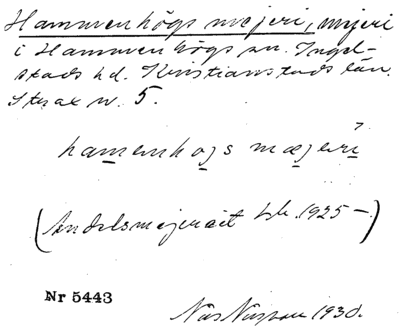 Hammenhögs mejeri, mejeri
i Hammenhögs sn. Ingel-
stads hd. Kristianstads län.
Strax n. 5.
hamenhogs mæjeri
(Andelsmejeriet 1925 –)
Nr 5443
Nils 1930.